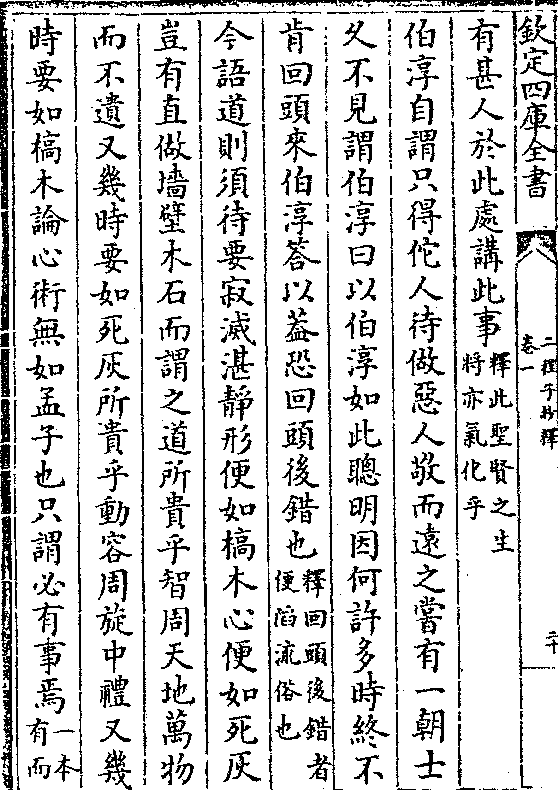 欽定四庫全書
卷一
二程子抄釋
二十
有甚人於此處講此事釋此聖賢之生
將亦氣化乎
伯淳自謂只得佗人待做惡人敬而遠之嘗有一朝士
乆不見謂伯淳曰以伯淳如此聰明因何許多時終不
肯回頭來伯淳荅以葢恐回頭後錯也釋回頭後錯者
便䧟流俗也
今語道則須待要寂滅湛靜形便如槁木心便如死灰
豈有直做墻壁木石而謂之道所貴乎智周天地萬物
而不遺又幾時要如死灰所貴乎動容周旋中禮又幾
時要如槁木論心術無如孟子也只謂必有事焉一本
有而